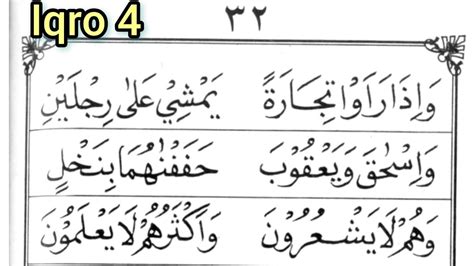 Iqro 4
٣٢
وَاِذَا رَاَوْا تِجَارَةً يَمْشِيْ عَلٰى رِجْلَيْنِ
وَاِسْحٰقَ وَيَعْقُوْبَ حَفَفْنٰهُمَا بِنَخْلٍ
وَهُمْ لَا يَشْعُرُوْنَ وَاَكْثَرُهُمْ لَا يَعْلَمُوْنَ